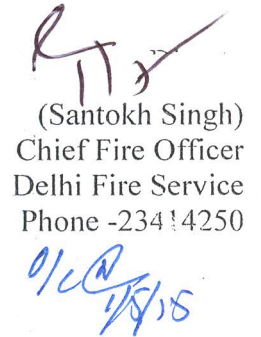 (Santokh Singh)
Chief Fire Officer
Delhi Fire Service
Phone -23414250
O/C
1/5/15